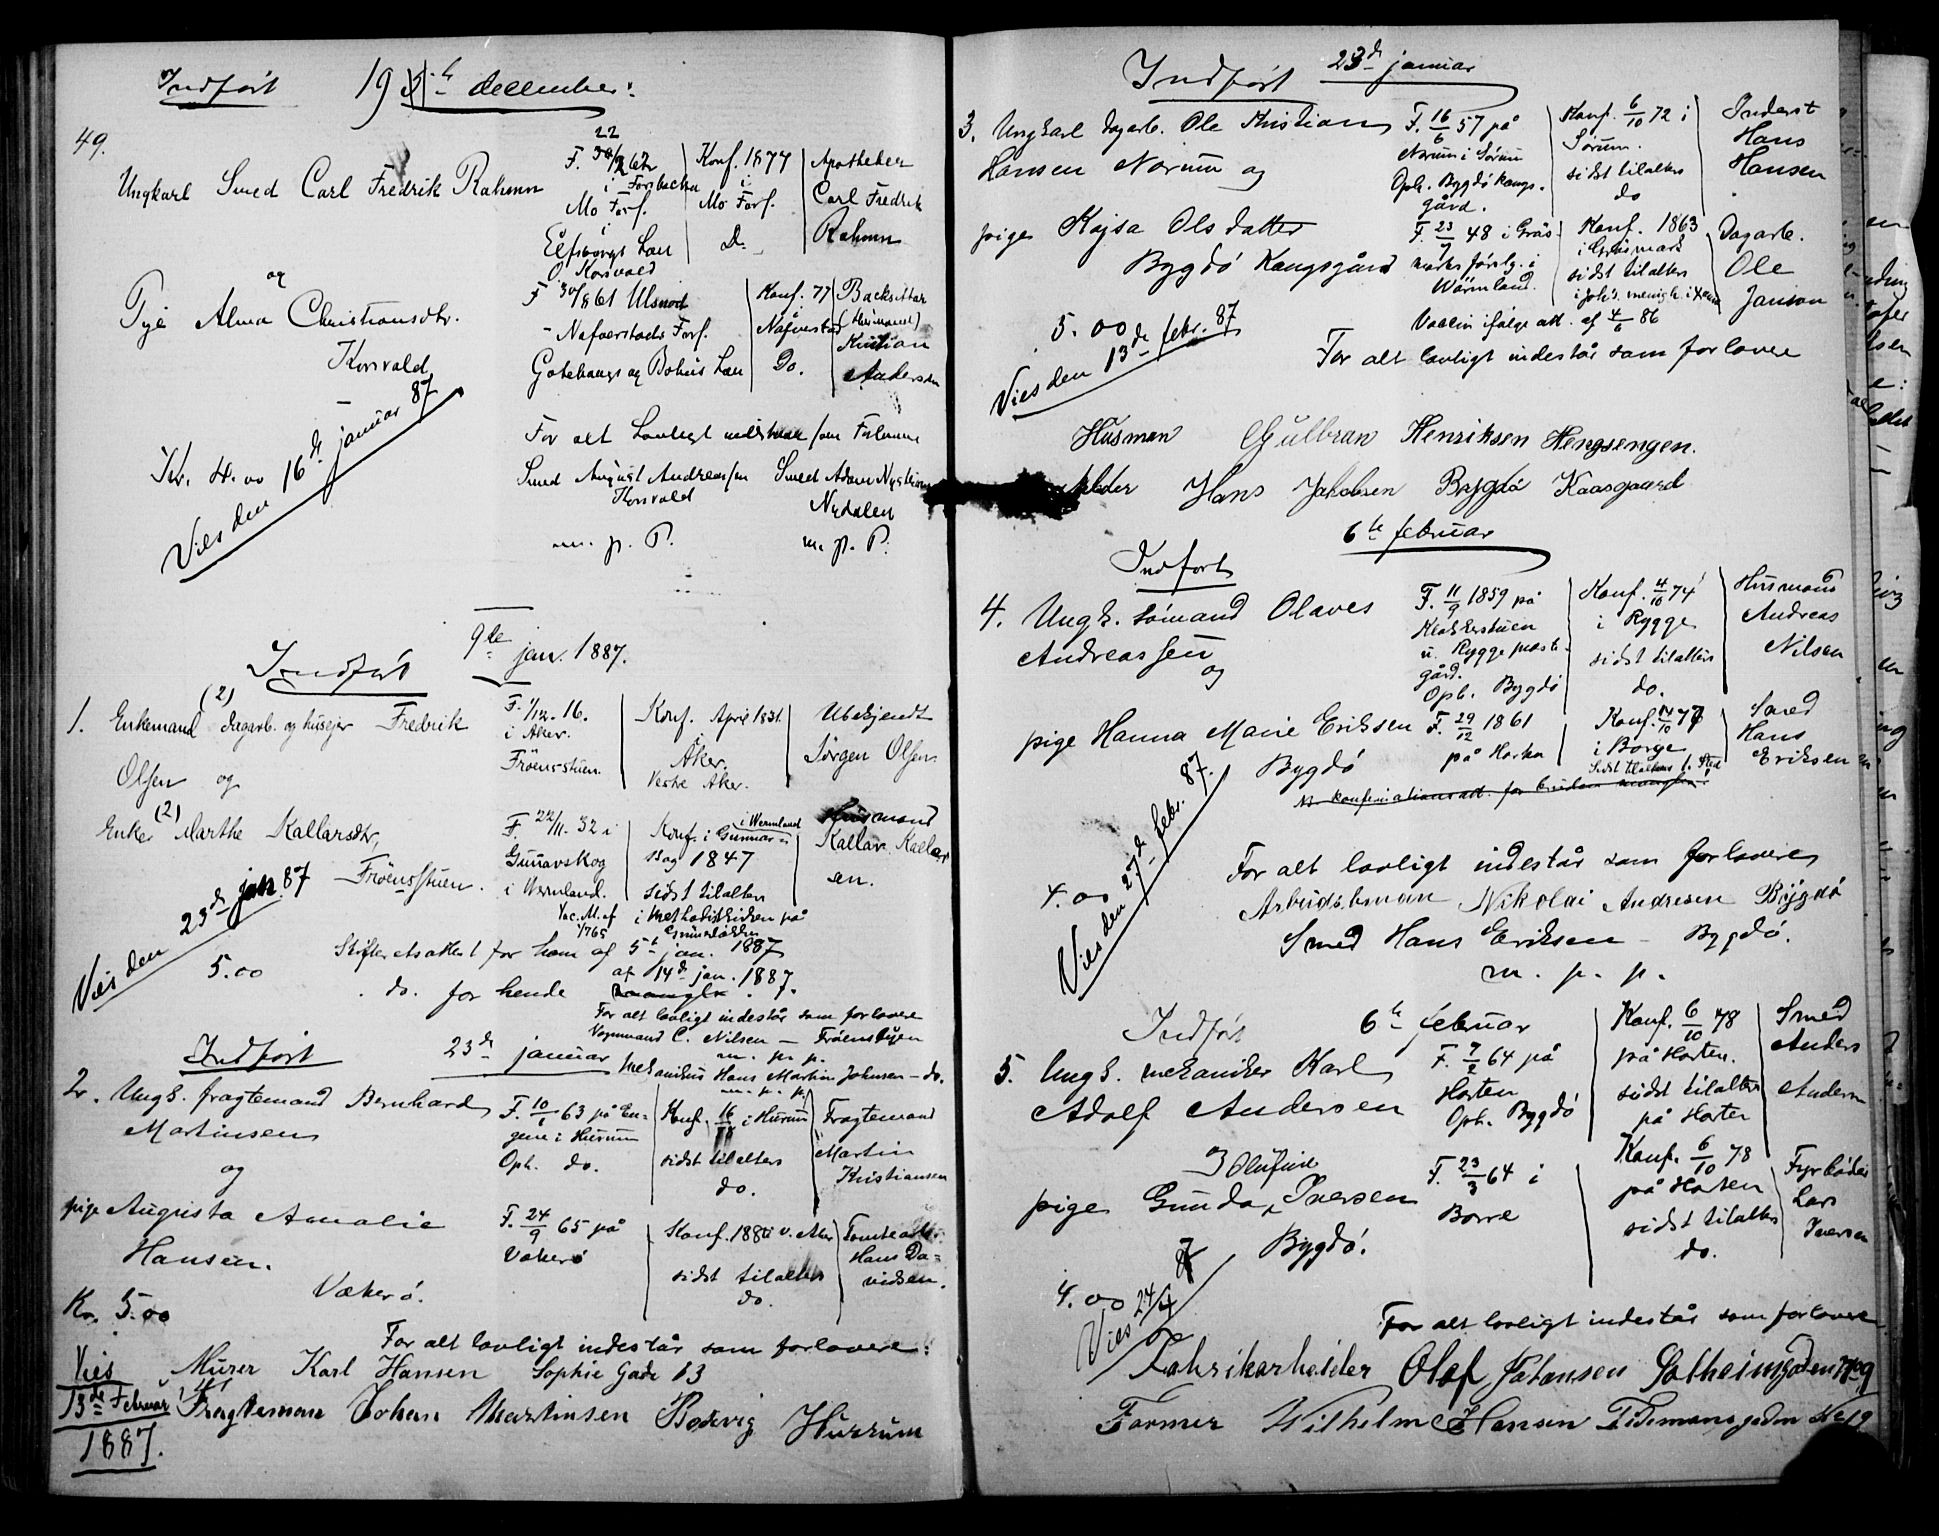 Indført 19de december:
49.
Ungkarl Smed Carl Fredrik Rahmn
F. 22/2 62
i Forsbacka
Mo Forf.
i
Elfsborgs Len
O. Korsvold
Konf. 1877
i
Mo Forf.
Do
Apotheker
Carl Fredrik
Rahmn
og
Pige Alma Christiansdtr.
Korsvold
F 30/8 61 Ulsnod
Nafverstads Forf.
Gøteborgs og Bohus Len
Konf. 77
Nafverstad
Do.
Backsittar
(Husmand)
Kristian
Andersen
Kr. 4.00
Vies den 16d januar 87
For alt Lovligt indestaar som Forlovere
Smed August Andreassen
Korsvold
m. p. P.
Smed Adam Nystrøm
Nydalen
m. p. P.
9de jan. 1887.
Indført
1. Enkemand (2) dagarb. og huseier Fredrik
Olsen og
F. 1/12. 16.
i Aker.
Frøensstuen.
Konf. April 1831
Aker.
Vestre Aker.
Ubekjendt
Jørgen Olsen
(2)
Enke Marthe Kallarsdtr,
Frøensstuen.
F. 22/11. 32 i
Gunarskog
i Wermland.
Vac. M. af
1/765
Konf. i Gunnars-
i Wermland
kog 1847
sidst tilalters
i methodistkirken på
Grünerløkken
Husmand
Kallar Kallar
en.
Vies den 23d jan 87
5.00
Skifteretsattest for ham af 5t jan. 1887
do. for hende af 14d jan. 1887.
mangler.
For alt lovligt indestår som forlovere
Vognmand C. Nilsen — Frøensbyen
m. p. p.
Mekanikus Hans Martin Johnsen — do.
m. p. p.
Indført 23d januar
2. Ungk. fragtemand Bernhard
Martinsen
og
F. 10/1 63 på En-
gene i Hurum
Oph. do.
Konf. 16 i Hurum
sidst tilalters
do.
Fragtemand
Martin
Kristiansen
pige Augusta Amalie
Hansen.
Vækerø.
F. 24/9 65 på
Vækerø
Konf. 1880 i v. Aker
sidst tilalters
do.
Tomtearb.
Hans Da-
vidsen.
Kr. 5.00
For alt lovligt indestår som forlovere:
Vies
13de Februar
1887.
Murer Karl Hansen Sophie Gade 13
Fragtemand Johan Martinsen Bødevig Hurrum
Indført 23d januar
3. Ungkarl dagarb. Ole Kristian
Hansen Norum og
F. 16/6 57 på
Norum i Sørum
Oph. Bygdø kongs-
gård.
Konf. 6/10 72 i
Sørum.
sidst tilalters
do
Inderst
Hans
Hansen
pige Kajsa Olsdatter
Bygdø Kongsgård
F. 23/7 48 i Gräs-
marks førslg. i
Wärmland.
Konf. 1863
i Gräsmark
sidst tilalters
i Joh's. menigh. i Xania
Dagarb.
Ole
Janson
Vaccin ifølge att. af 4/6 86
5.00
Vies den 13de febr. 87
For alt lovligt indestår som forlovere
Husman Gulbran Henriksen Hengsengen.
Hans Jakobsen Bygdø Kaasgaard
6te februar
Indført
4. Ungk. sømand Olaves
Andreassen
og
F. 11/9 1859 på
Klokkerstuen
u. Rygge præste-
gård.
Oph. Bygdø
Konf. 4/10 74
i Rygge
sidst tilalters
do.
Husmand
Andreas
Nilsen
pige Hanna Marie Eriksen
Bygdø
F. 29/12 1861
på Horka
Konf. 14/10 77
i Borge
Sidst tilalters
Smed
Hans
Eriksen
N. konfirmationsatt. for bruden mangler!
4.00
Vies den 27d febr. 87.
For alt lovligt indestår som forlovere
Arbeidsman Nikolai Andresen Bygdø
Smed Hans Eriksen — Bygdø.
m. p. p.
Indført 6te februar
5. Ungk. mekaniker Karl
Adolf Andersen
F. 7/2 64 på
Horten
Oph. Bygdø
Konf. 6/10 78
på Horten.
sidst tilalters
på Horten
Smed
Anders
Andersen
og Olufine
pige Gunda Iversen
Bygdø.
F. 23/3 64 i
Borre
Konf. 6/10 78
på Horten
sidst tilalters
do.
Fyrbøder
Lars
Iversen
4.00
Vies 24/4 87
For alt lovligt indestår som forlovere
Fabrikarbeider Olaf Johansen
Former Wilhelm Hansen Tidemansgaden No 19